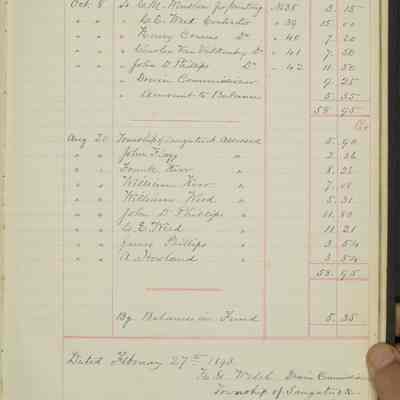 Oct. 8 To C. M. Winslow for printing No 38 3.15
" " " C. E. Weed Contractor " 39 15.00
" " " Henry Do " 40 7.20
" " " Do " 41 7.50
" " " John D. Phillips Do " 42 11.50
" " " Drain Commissioner 9.25
" " " Amount to Balance 5.35
58.95
Cr
Aug 20 Township of Saugatuck Assessed 5.90
" " John " 2.26
" " Frank Kerr " 8.26
" " William Kerr " 7.08
" " William Weed " 5.31
" " John D. Phillips " 11.80
" " C. E. Weed " 11.21
" " James Phillips " 3.54
" " A. Howland " 3.54
58.95
By Balance in Fund 5.35
Dated February 27th 1893
Drain Commissioner
Township of Saugatuck